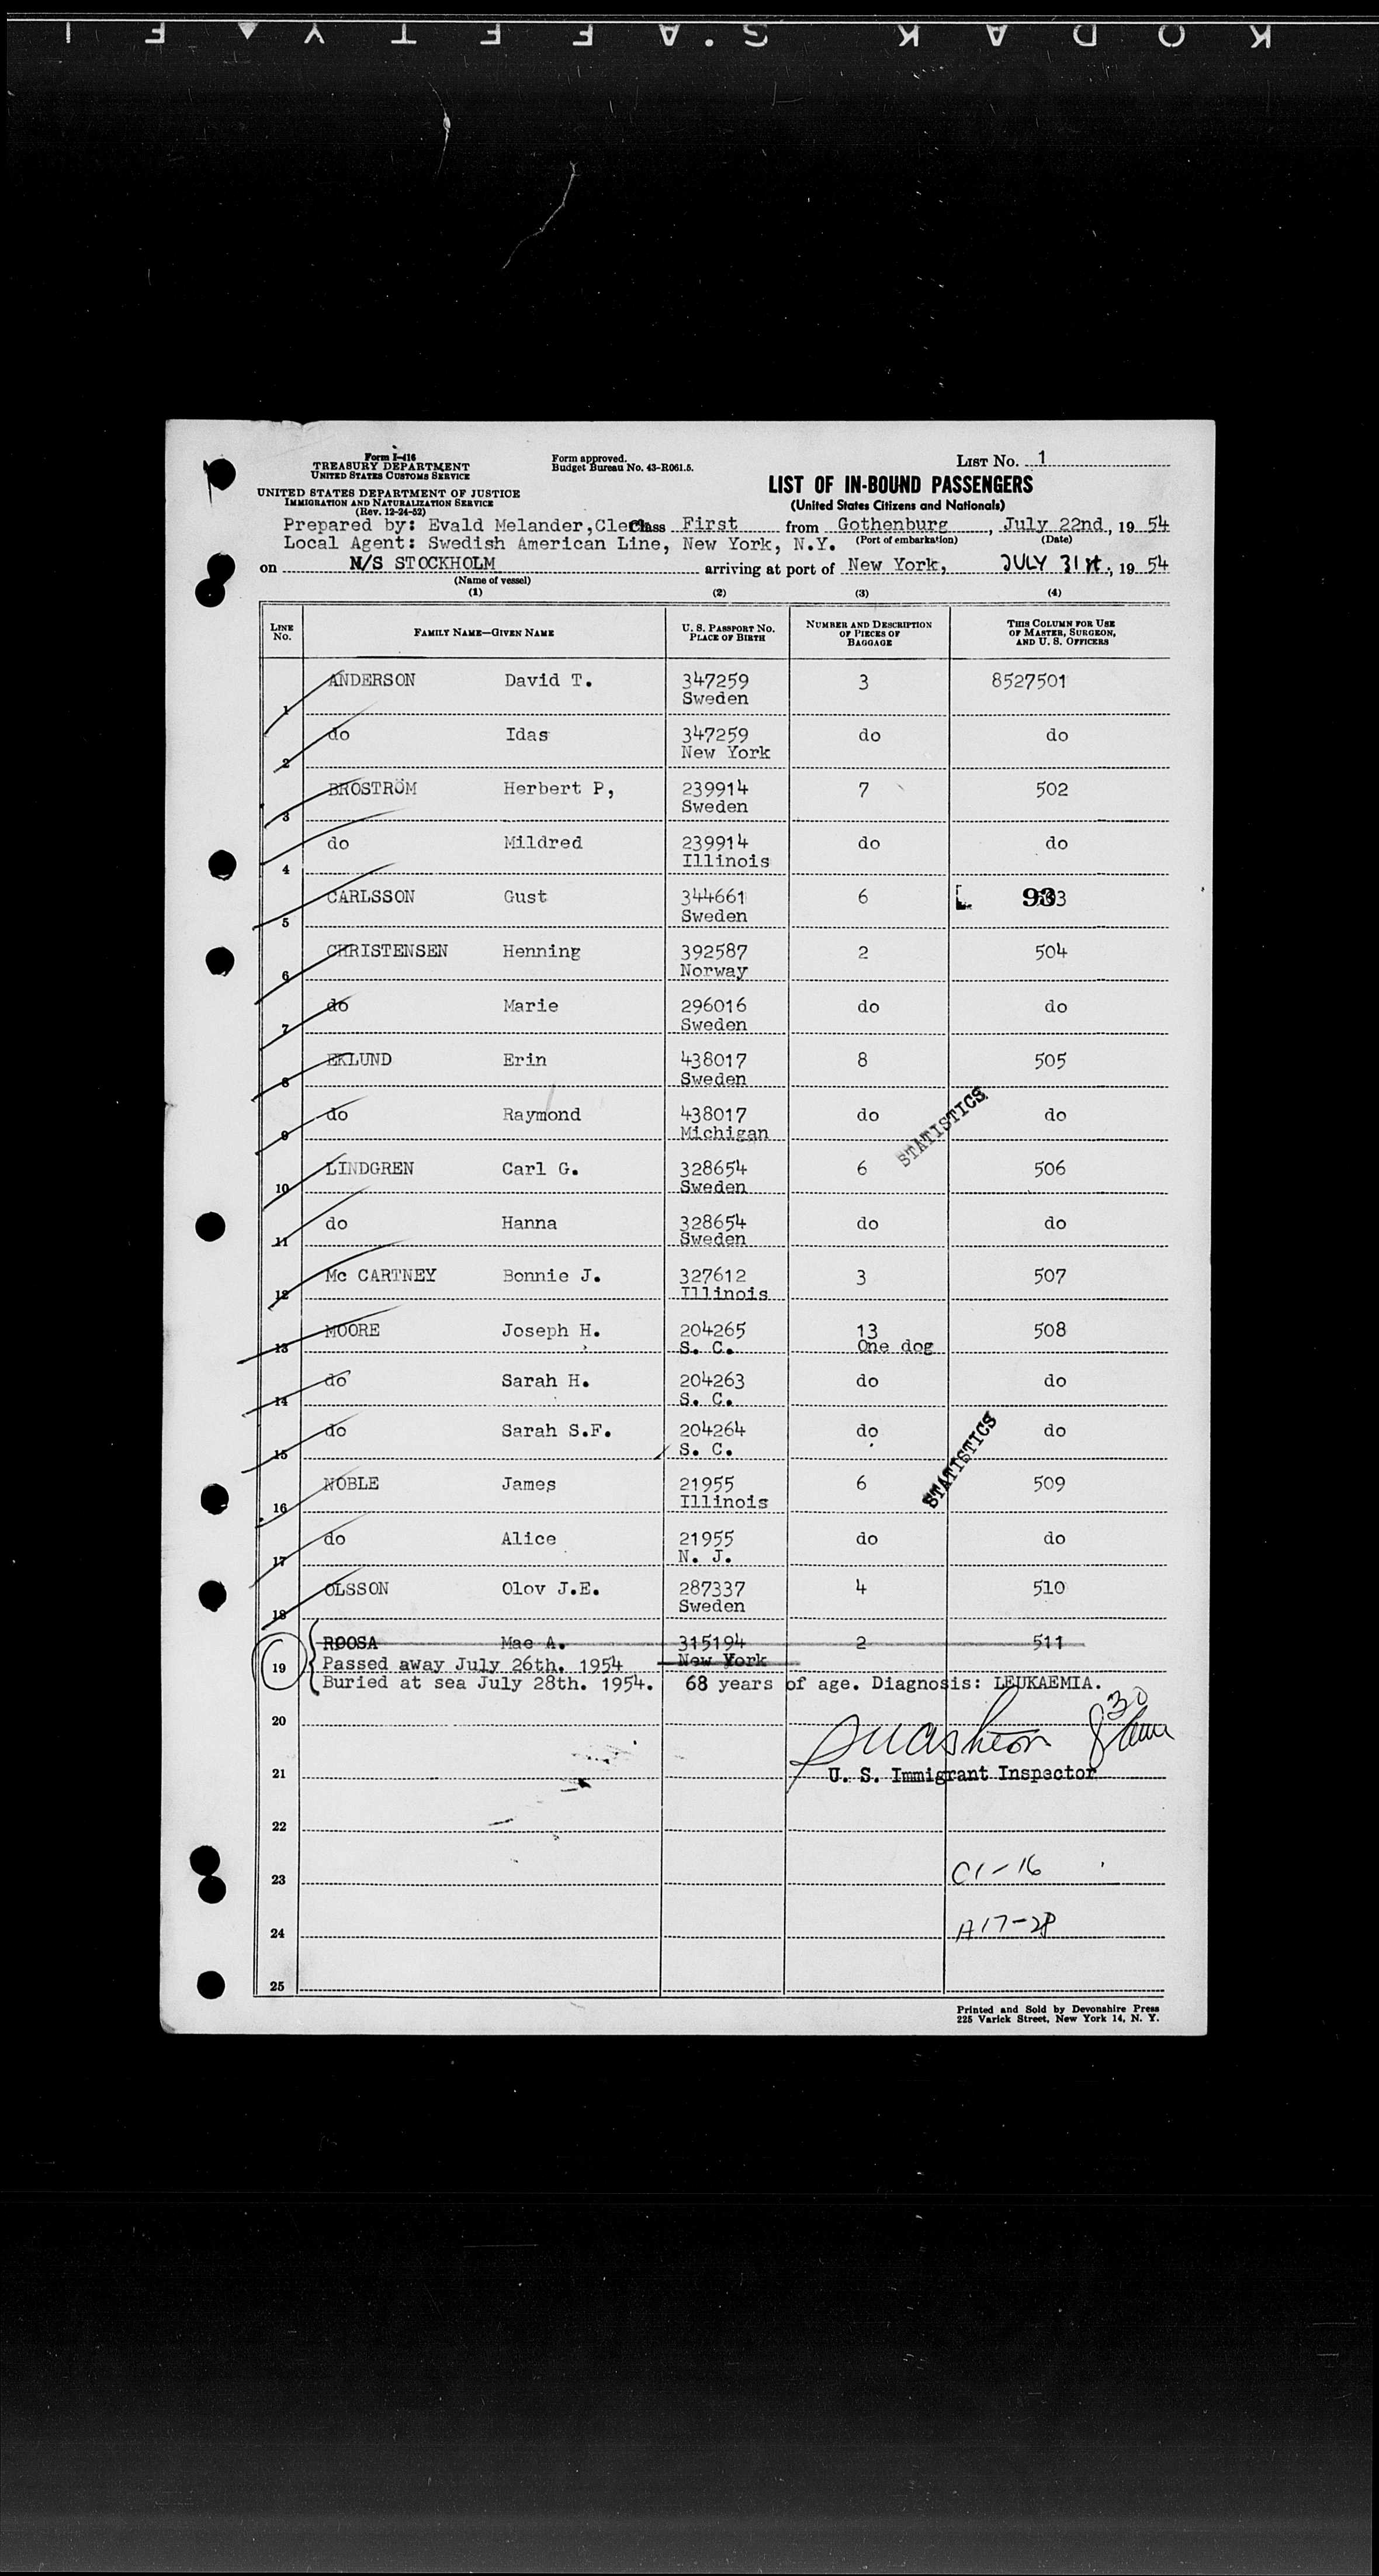 KODAK · S.A.F.E.T.Y ▲ F I
Form I-416
TREASURY DEPARTMENT
UNITED STATES CUSTOMS SERVICE
UNITED STATES DEPARTMENT OF JUSTICE
IMMIGRATION AND NATURALIZATION SERVICE
(Rev. 12-24-52)
Form approved.
Budget Bureau No. 43-R061.5.
LIST No. 1
LIST OF IN-BOUND PASSENGERS
(United States Citizens and Nationals)
Prepared by: Evald Melander,Clerk Class First from Gothenburg, July 22nd, 19 54
Local Agent: Swedish American Line, New York, N.Y. (Port of embarkation) (Date)
on M/S STOCKHOLM arriving at port of New York, JULY 31st, 19 54
(Name of vessel)
(1) (2) (3) (4)
LINE No. FAMILY NAME—GIVEN NAME U. S. PASSPORT NO. PLACE OF BIRTH NUMBER AND DESCRIPTION OF PIECES OF BAGGAGE THIS COLUMN FOR USE OF MASTER, SURGEON, AND U. S. OFFICERS
1 ANDERSON David T. 347259 3 8527501
Sweden
2 do Idas 347259 do do
New York
3 BROSTRÖM Herbert P, 239914 7 502
Sweden
4 do Mildred 239914 do do
Illinois
5 CARLSSON Gust 344661 6 93 503
Sweden
6 CHRISTENSEN Henning 392587 2 504
Norway
7 do Marie 296016 do do
Sweden
8 EKLUND Erin 438017 8 505
Sweden
9 do Raymond 438017 do do
Michigan
STATISTICS
10 LINDGREN Carl G. 328654 6 506
Sweden
11 do Hanna 328654 do do
Sweden
12 Mc CARTNEY Bonnie J. 327612 3 507
Illinois
13 MOORE Joseph H. 204265 13 508
S. C. One dog
14 do Sarah H. 204263 do do
S. C.
15 do Sarah S.F. 204264 do do
S. C.
STATISTICS
16 NOBLE James 21955 6 509
Illinois
17 do Alice 21955 do do
N. J.
18 OLSSON Olov J.E. 287337 4 510
Sweden
19 ROOSA Mae A. 315194 2 511
Passed away July 26th. 1954 New York
Buried at sea July 28th. 1954. 68 years of age. Diagnosis: LEUKAEMIA.
20
830
21 U. S. Immigrant Inspector
22
23 C1-16
24 A17-28
25
Printed and Sold by Devonshire Press
225 Varick Street, New York 14, N. Y.